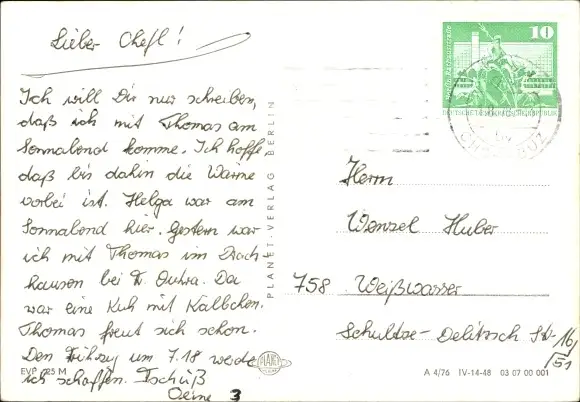 Lieber Chefl!
Ich will Dir nur schreiben,
daß ich mit Thomas am
Sonnabend komme. Ich hoffe
daß bis dahin die Wärme
vorbei ist. Helga war am
Sonnabend hier. Gestern war
ich mit Thomas im
hausen bei Da
war eine Kuh mit Kälbchen.
Thomas freut sich schon.
Den Frühzug um 7.18 werde
ich schaffen. Tschüß
Deine 3
EVP 25 M
PLANET-VERLAG BERLIN
PLANET
10
Herrn
Wenzel Huber
758 Weißwasser
Schultze-Delitzsch Str. 16/
51
A 4/76 IV-14-48 03 07 00 001